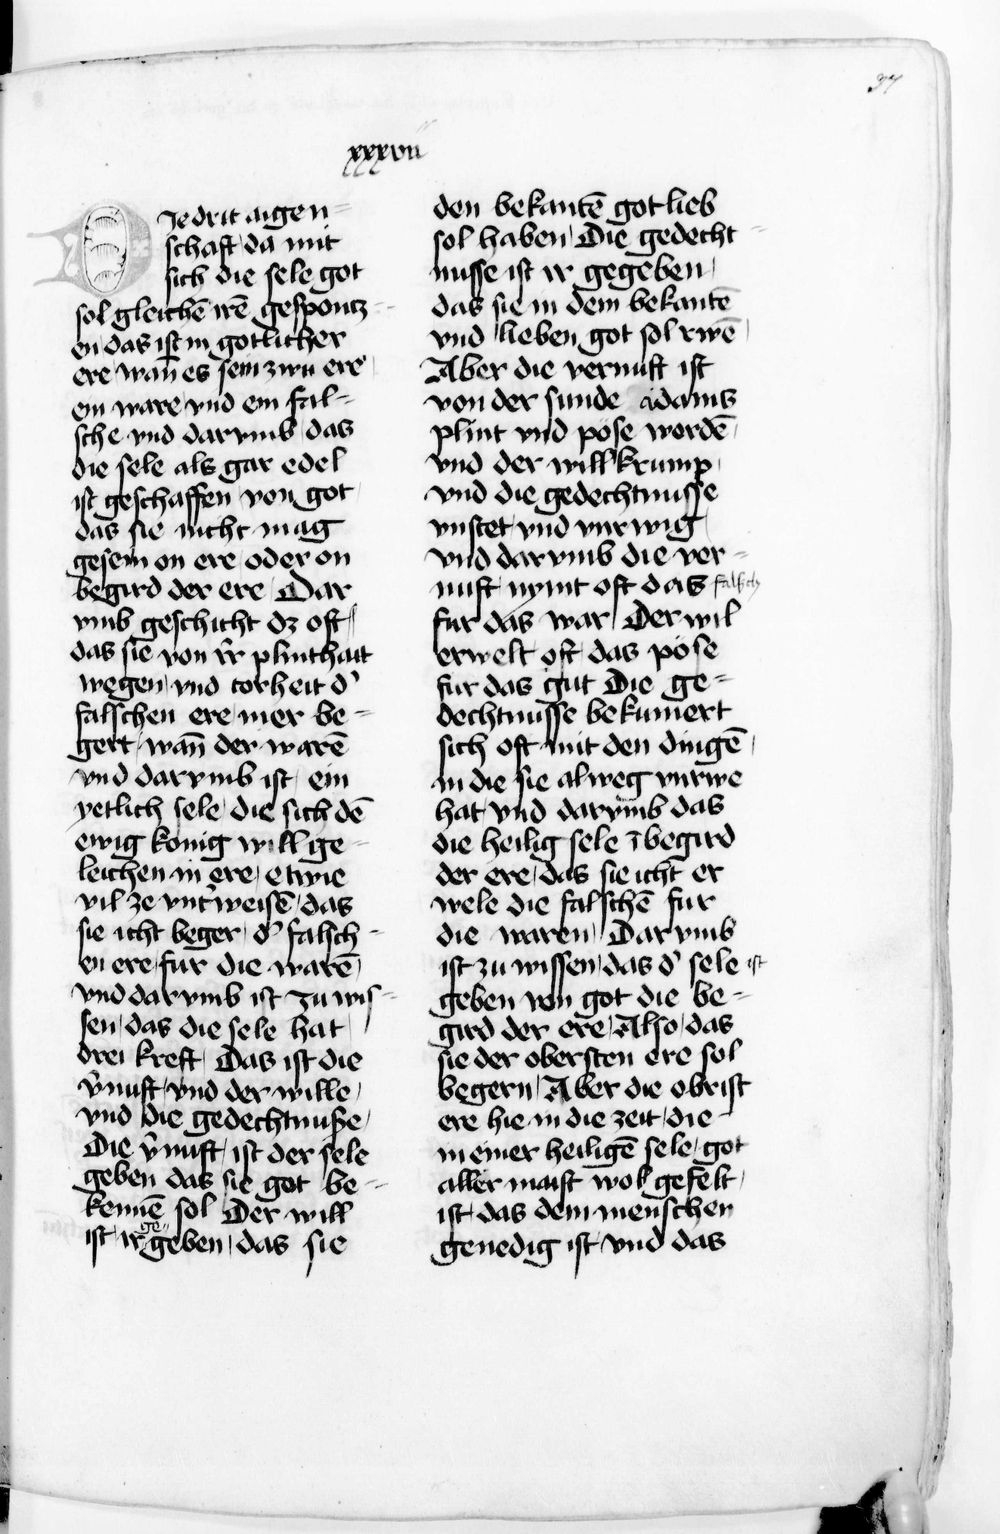 37
xxxvii
DIe drit aigen=
schaft / da mit
sich die sele got
sol gleichē irē gesponcz=
en / das ist in gotlicher
ere / wan̄ es sein zwu ere /
ein ware / vnd ein fal=
sche vnd darvmb / das
die sele als gar edel
ist geschaffen / von got /
das sie nicht mag
gesein on ere / oder on
begird der ere / Dar
vmb geschicht dz oft /
das sie von ir̄ plinthait
wegen / vnd torheit d'
falschen ere / mer be=
gert / wan̄ der warē
vnd darvmb ist / ein
yetlich sele / die sich dē
ewig konig will ge=
leichen in ere / etwie
vil ze vnt'weisē / das
sie icht beger / d' falsch=
en ere / fur die warē /
vnd darvmb ist zu wis=
sen / das die sele hat /
drei kreft / Das ist die
v̄nuft / vnd der wille /
vnd die gedechtnuße /
Die v̄nuft / ist der sele
geben das sie got be=
kennē sol Der will
ist / ir gegeben / das sie
den bekantē got lieb
sol haben / Die gedecht=
nusse ist ir gegeben /
das sie in dem bekantē
vnd lieben got sol rwē /
Aber die vernuft ist
von der sunde adams
plint vnd pöse wordē /
vnd der will krump /
vnd die gedechtnusse
vnstet / vnd vnrwig /
vnd darvmb die ver=
nuft / nymt oft das falsch
fur das war / Der wil
erwelt oft / das pöse
fur das gut Die ge=
dechtnusse bekumert
sich oft mit den dingē /
in die sie alweg vnrwe
hat / vnd darvmb das
die heilig sele ī begird
der ere / das sie icht er
wele die falschē fur
die waren / Darvmb
ist zu wissen / das d' sele ist
geben von got die be=
gird der ere / Also / das
sie der obersten ere sol
begern / Aber die obrist
ere hie in die zeit / die
in einer heiligē sele / got
aller maist wol gefelt /
ist / das dem menschen
genedig ist / vnd das